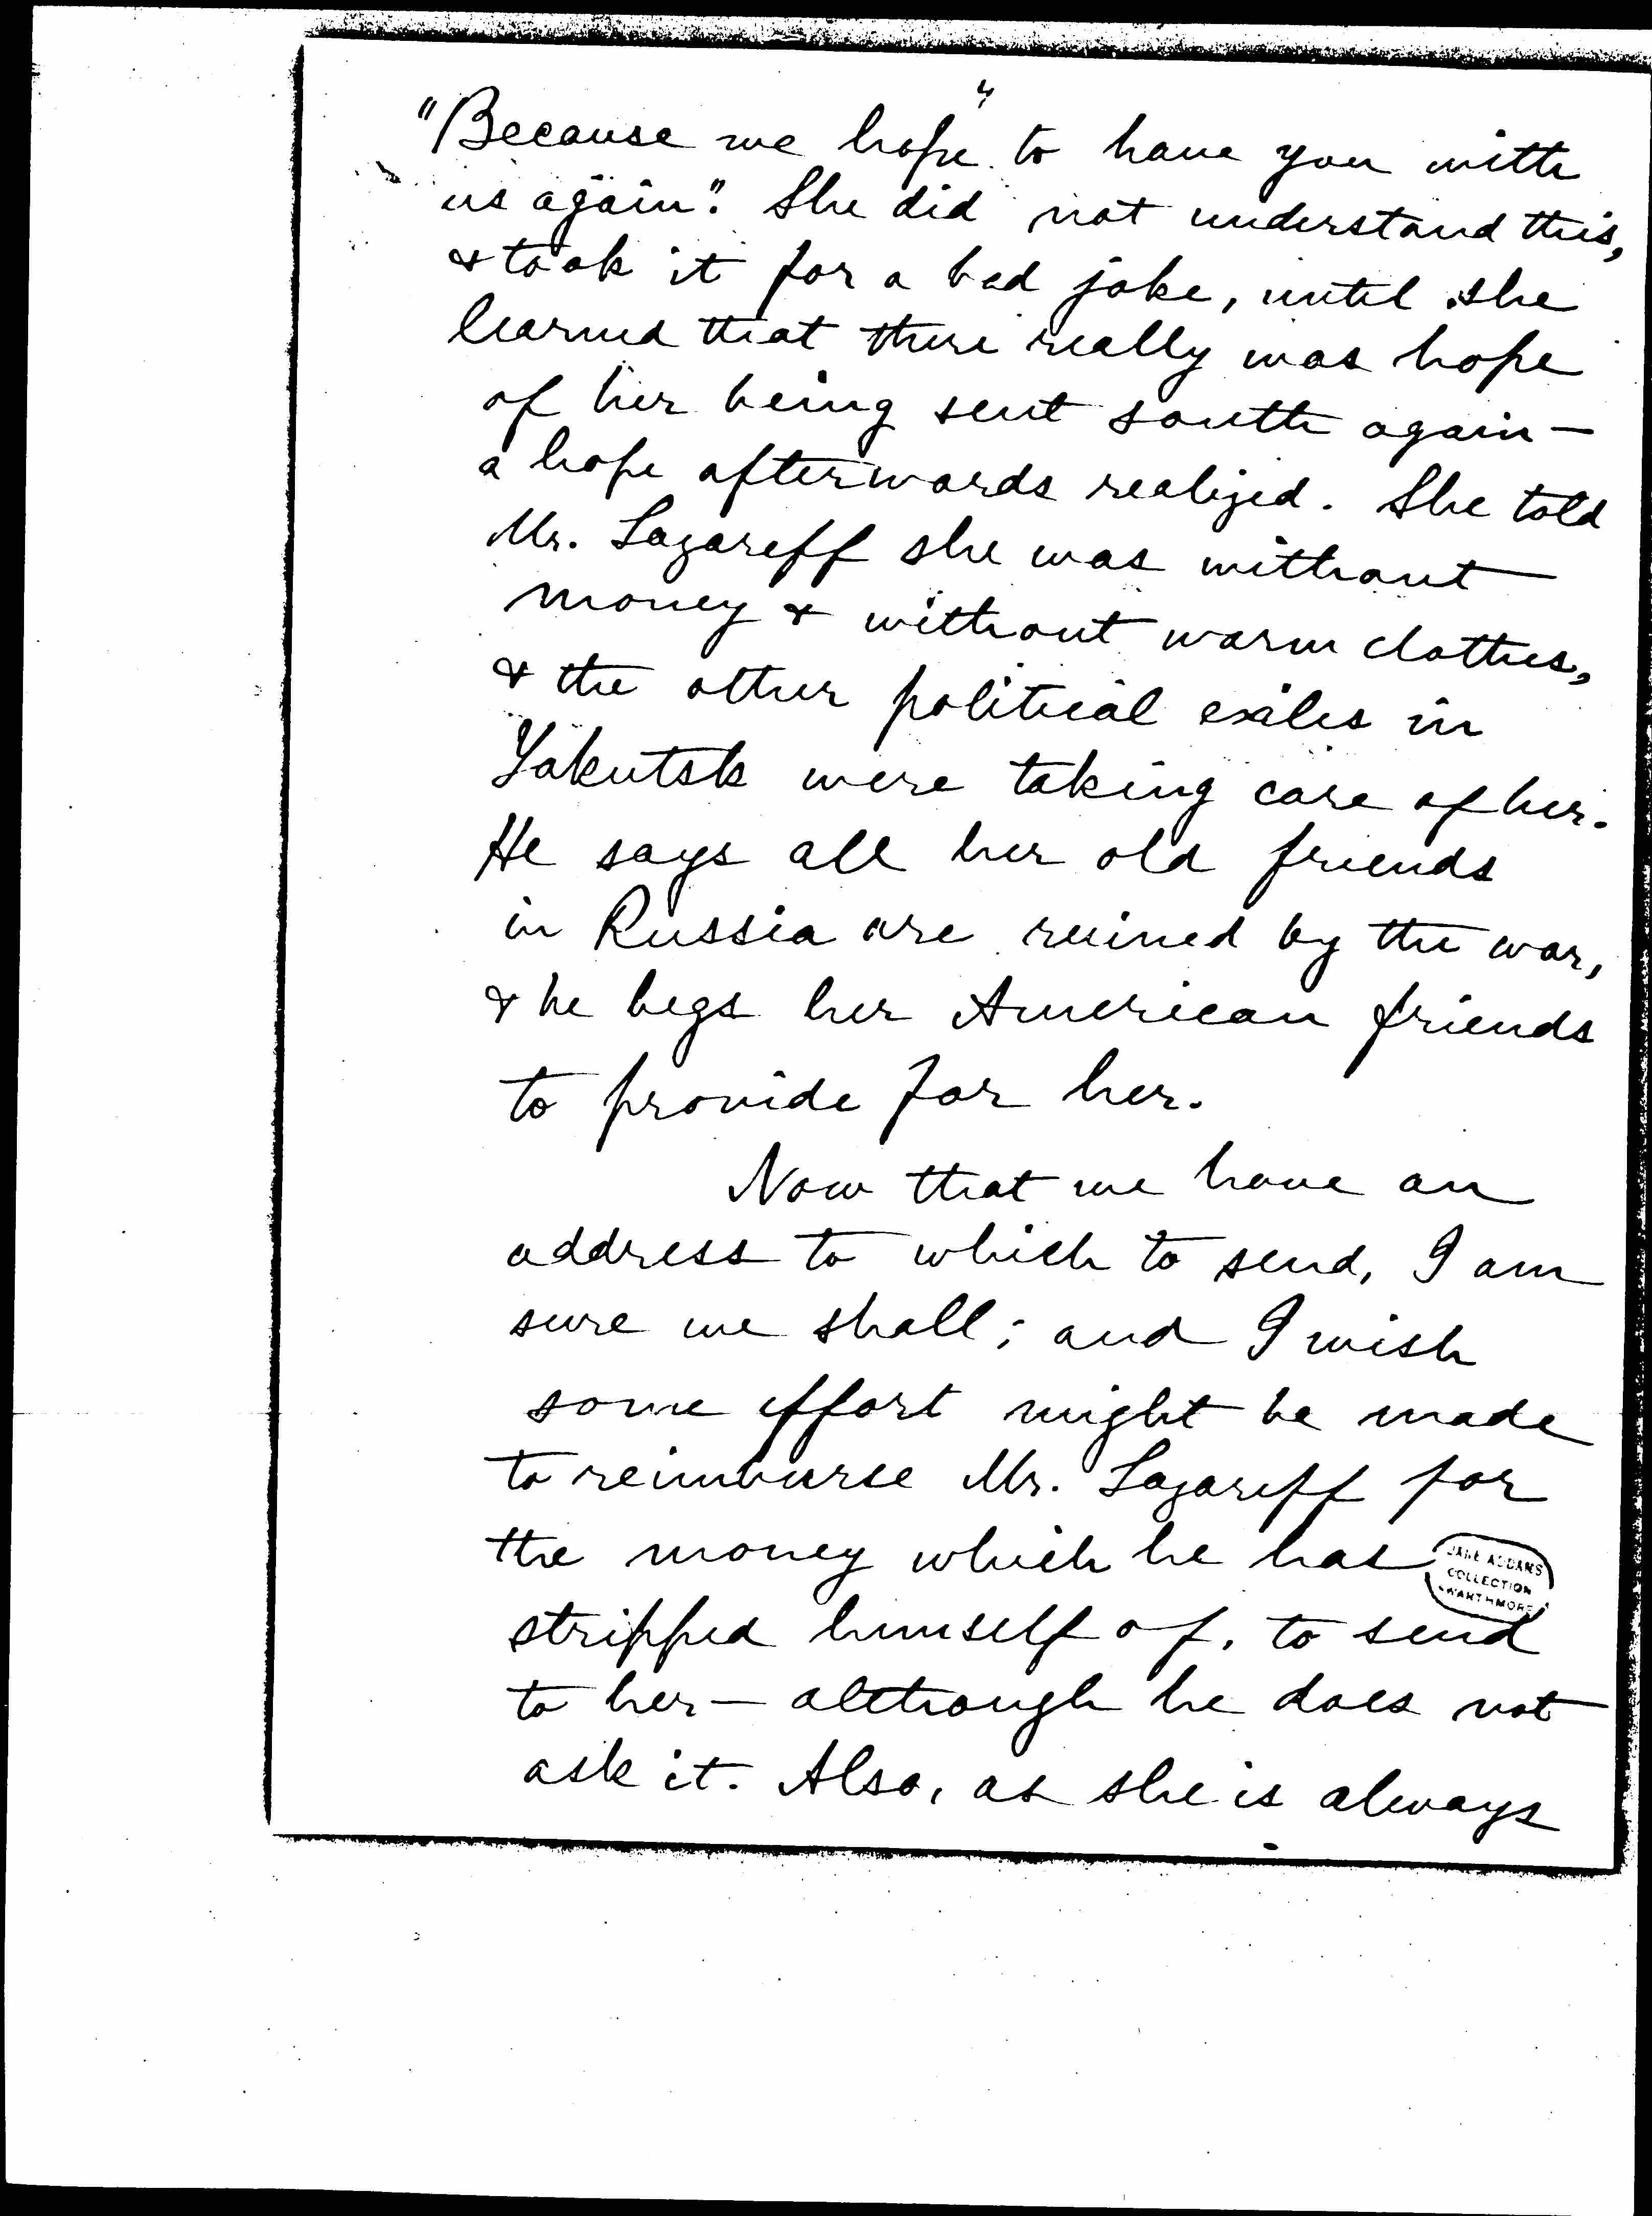 4
"Because we hope to have you with
us again." She did not understand this,
& took it for a bad joke, until she
learned that there really was hope
of her being sent south again —
a hope afterwards realized. She told
Mr. Lazareff she was without
money & without warm clothes,
& the other political exiles in
Yakutsk were taking care of her.
He says all her old friends
in Russia are ruined by the war,
& he begs her American friends
to provide for her.
Now that we have an
address to which to send, I am
sure we shall; and I wish
some effort might be made
to reimburse Mr. Lazareff for
the money which he has
JANE ADDAMS
COLLECTION
SWARTHMORE
stripped himself of, to send
to her — although he does not
ask it. Also, as she is always